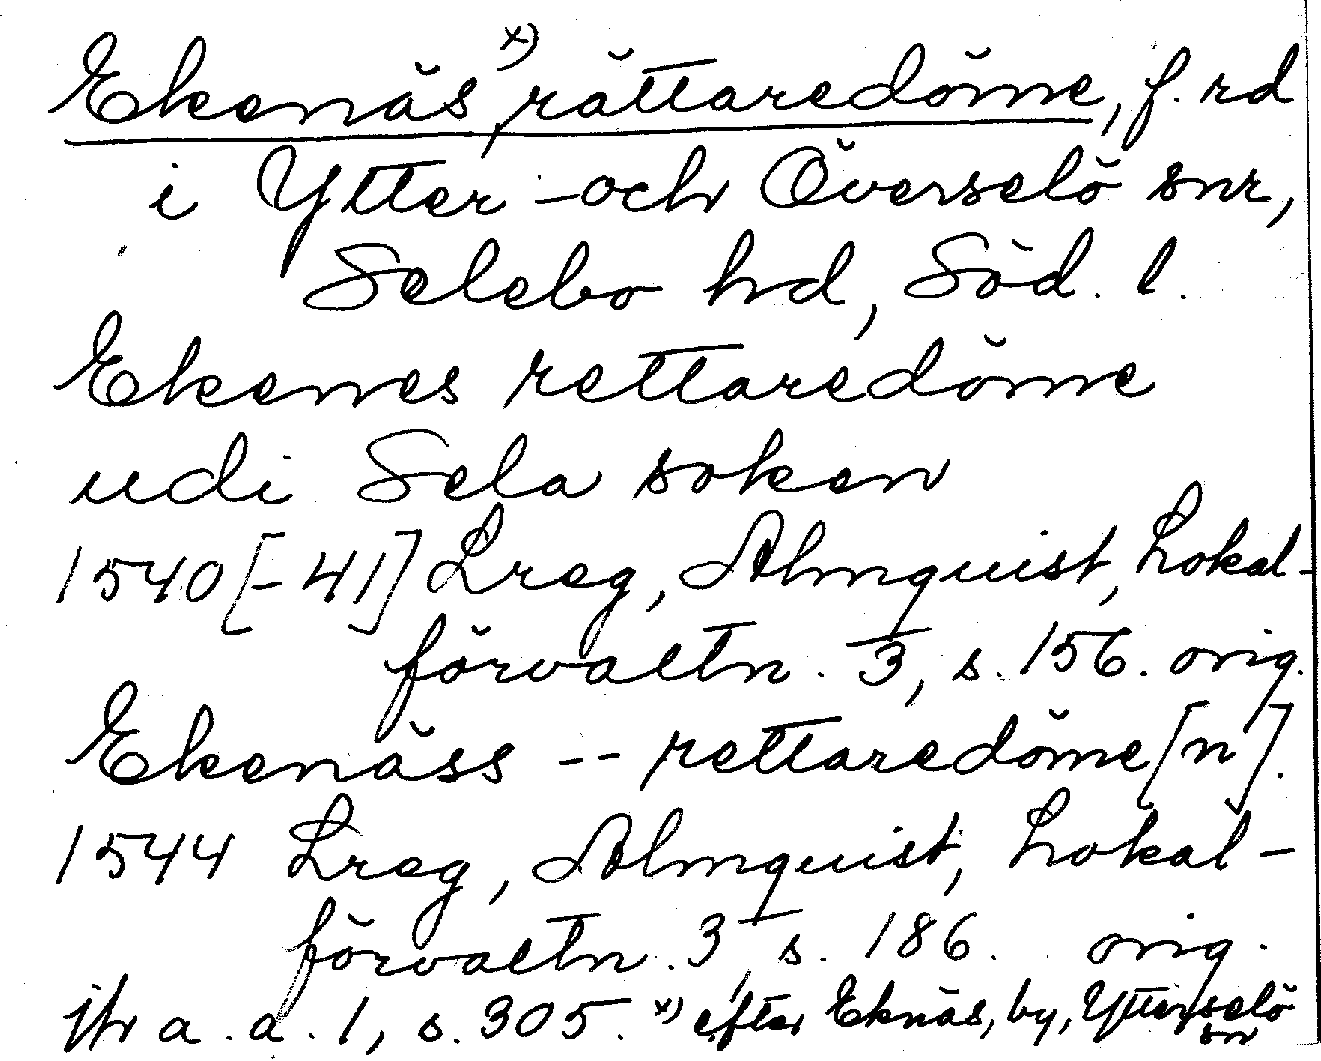 Ekenäs x) rättaredöme, f. rd
i Ytter- och Överselö snr,
Selebo hd, Söd. l.
Ekenes rettaredöme
udi Sela soken
1540 [-41] Lreg, Almquist, Lokal-
förvaltn. 3, s. 156. orig.
Ekenäss -- rettaredöme[n].
1544 Lreg, Almquist, Lokal-
förvaltn. 3, s. 186. orig.
jfr a. a. 1, s. 305. x) efter Eknäs, by, Ytterselö
sn